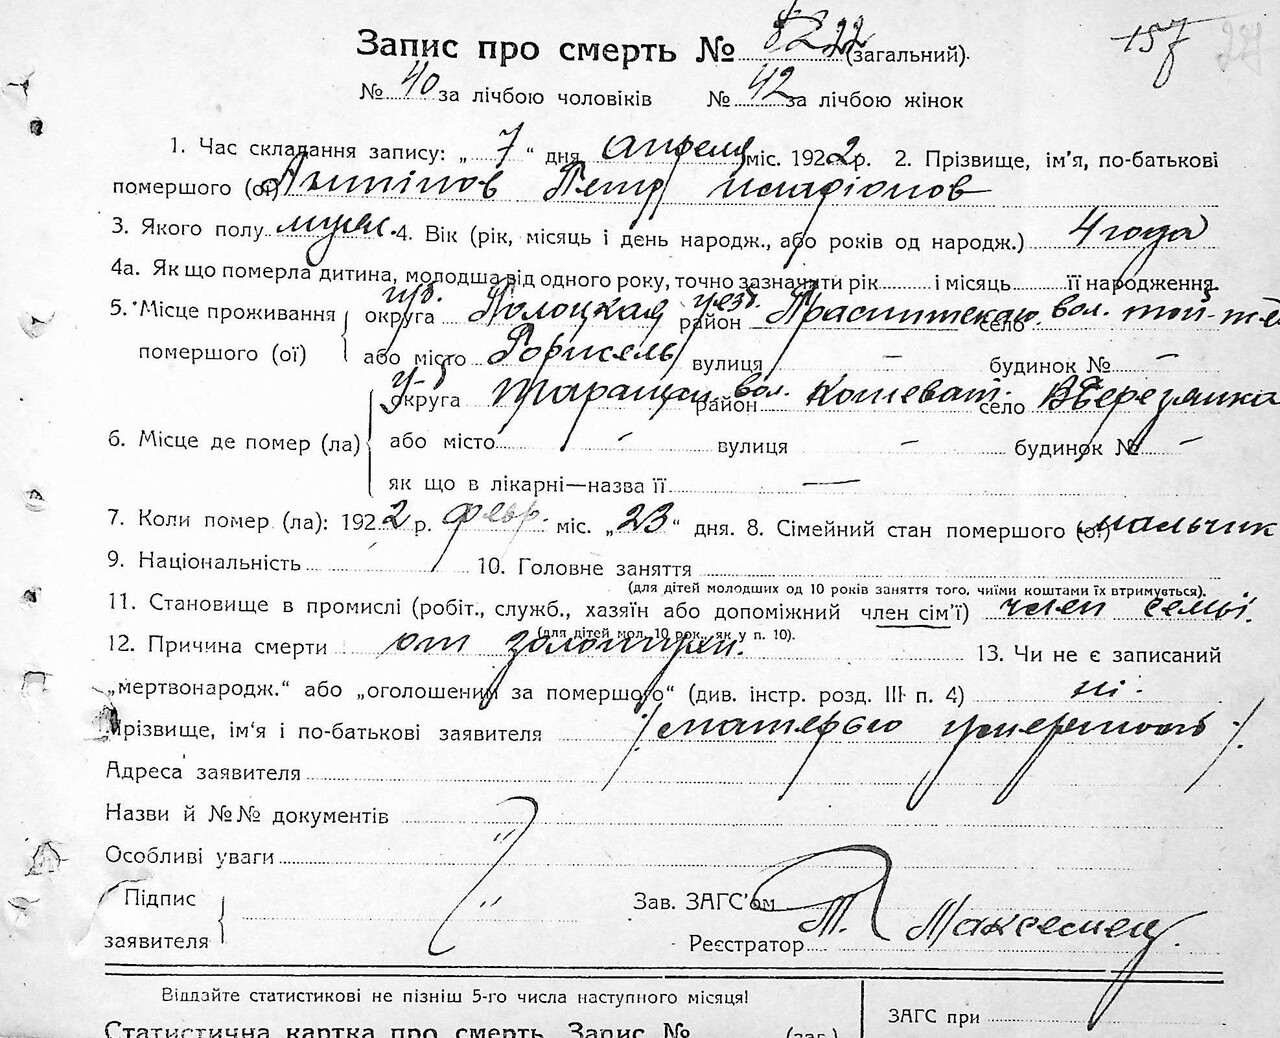 157
Запис про смерть № 82 22 (загальний).
№ 40 за лічбою чоловіків № 42 за лічбою жінок
1. Час складання запису: „ 7 “ дня апреля міс. 1922 р. 2. Прізвище, ім'я, по-батькові
помершого (ої) Антіпов Петр
3. Якого полу муж. 4. Вік (рік, місяць і день народж., або років од народж.) 4 года
4а. Як що померла дитина, молодша від одного року, точно зазначити рік і місяць її народження.
5. Місце проживання округа губ. Полоцкая район уезд. село вол. той-же
помершого (ої) або місто вулиця – будинок № –
округа у-д Таращан район вол. Кошеват. село Березянка
6. Місце де помер (ла) або місто – вулиця – будинок № –
як що в лікарні—назва її —
7. Коли помер (ла): 1922 р. февр. міс. „23“ дня. 8. Сімейний стан помершого (ої) мальчик
9. Національність 10. Головне заняття
(для дітей молодших од 10 років заняття того, чиїми коштами їх втримується).
11. Становище в промислі (робіт., служб., хазяїн або допоміжний член сім'ї) член семьі.
(для дітей мол. 10 рок., як у п. 10).
12. Причина смерти от 13. Чи не є записаний
„мертвонародж.“ або „оголошений за помершого“ (див. інстр. розд. III п. 4) ні.
Прізвище, ім'я і по-батькові заявителя / матерью /.
Адреса заявителя
Назви й №№ документів
Особливі уваги
Підпис
заявителя
Зав. ЗАГС'ом
Реєстратор
Віддайте статистикові не пізніш 5-го числа наступного місяця!
Статистична картка про смерть. Запис № (заг.)
ЗАГС при